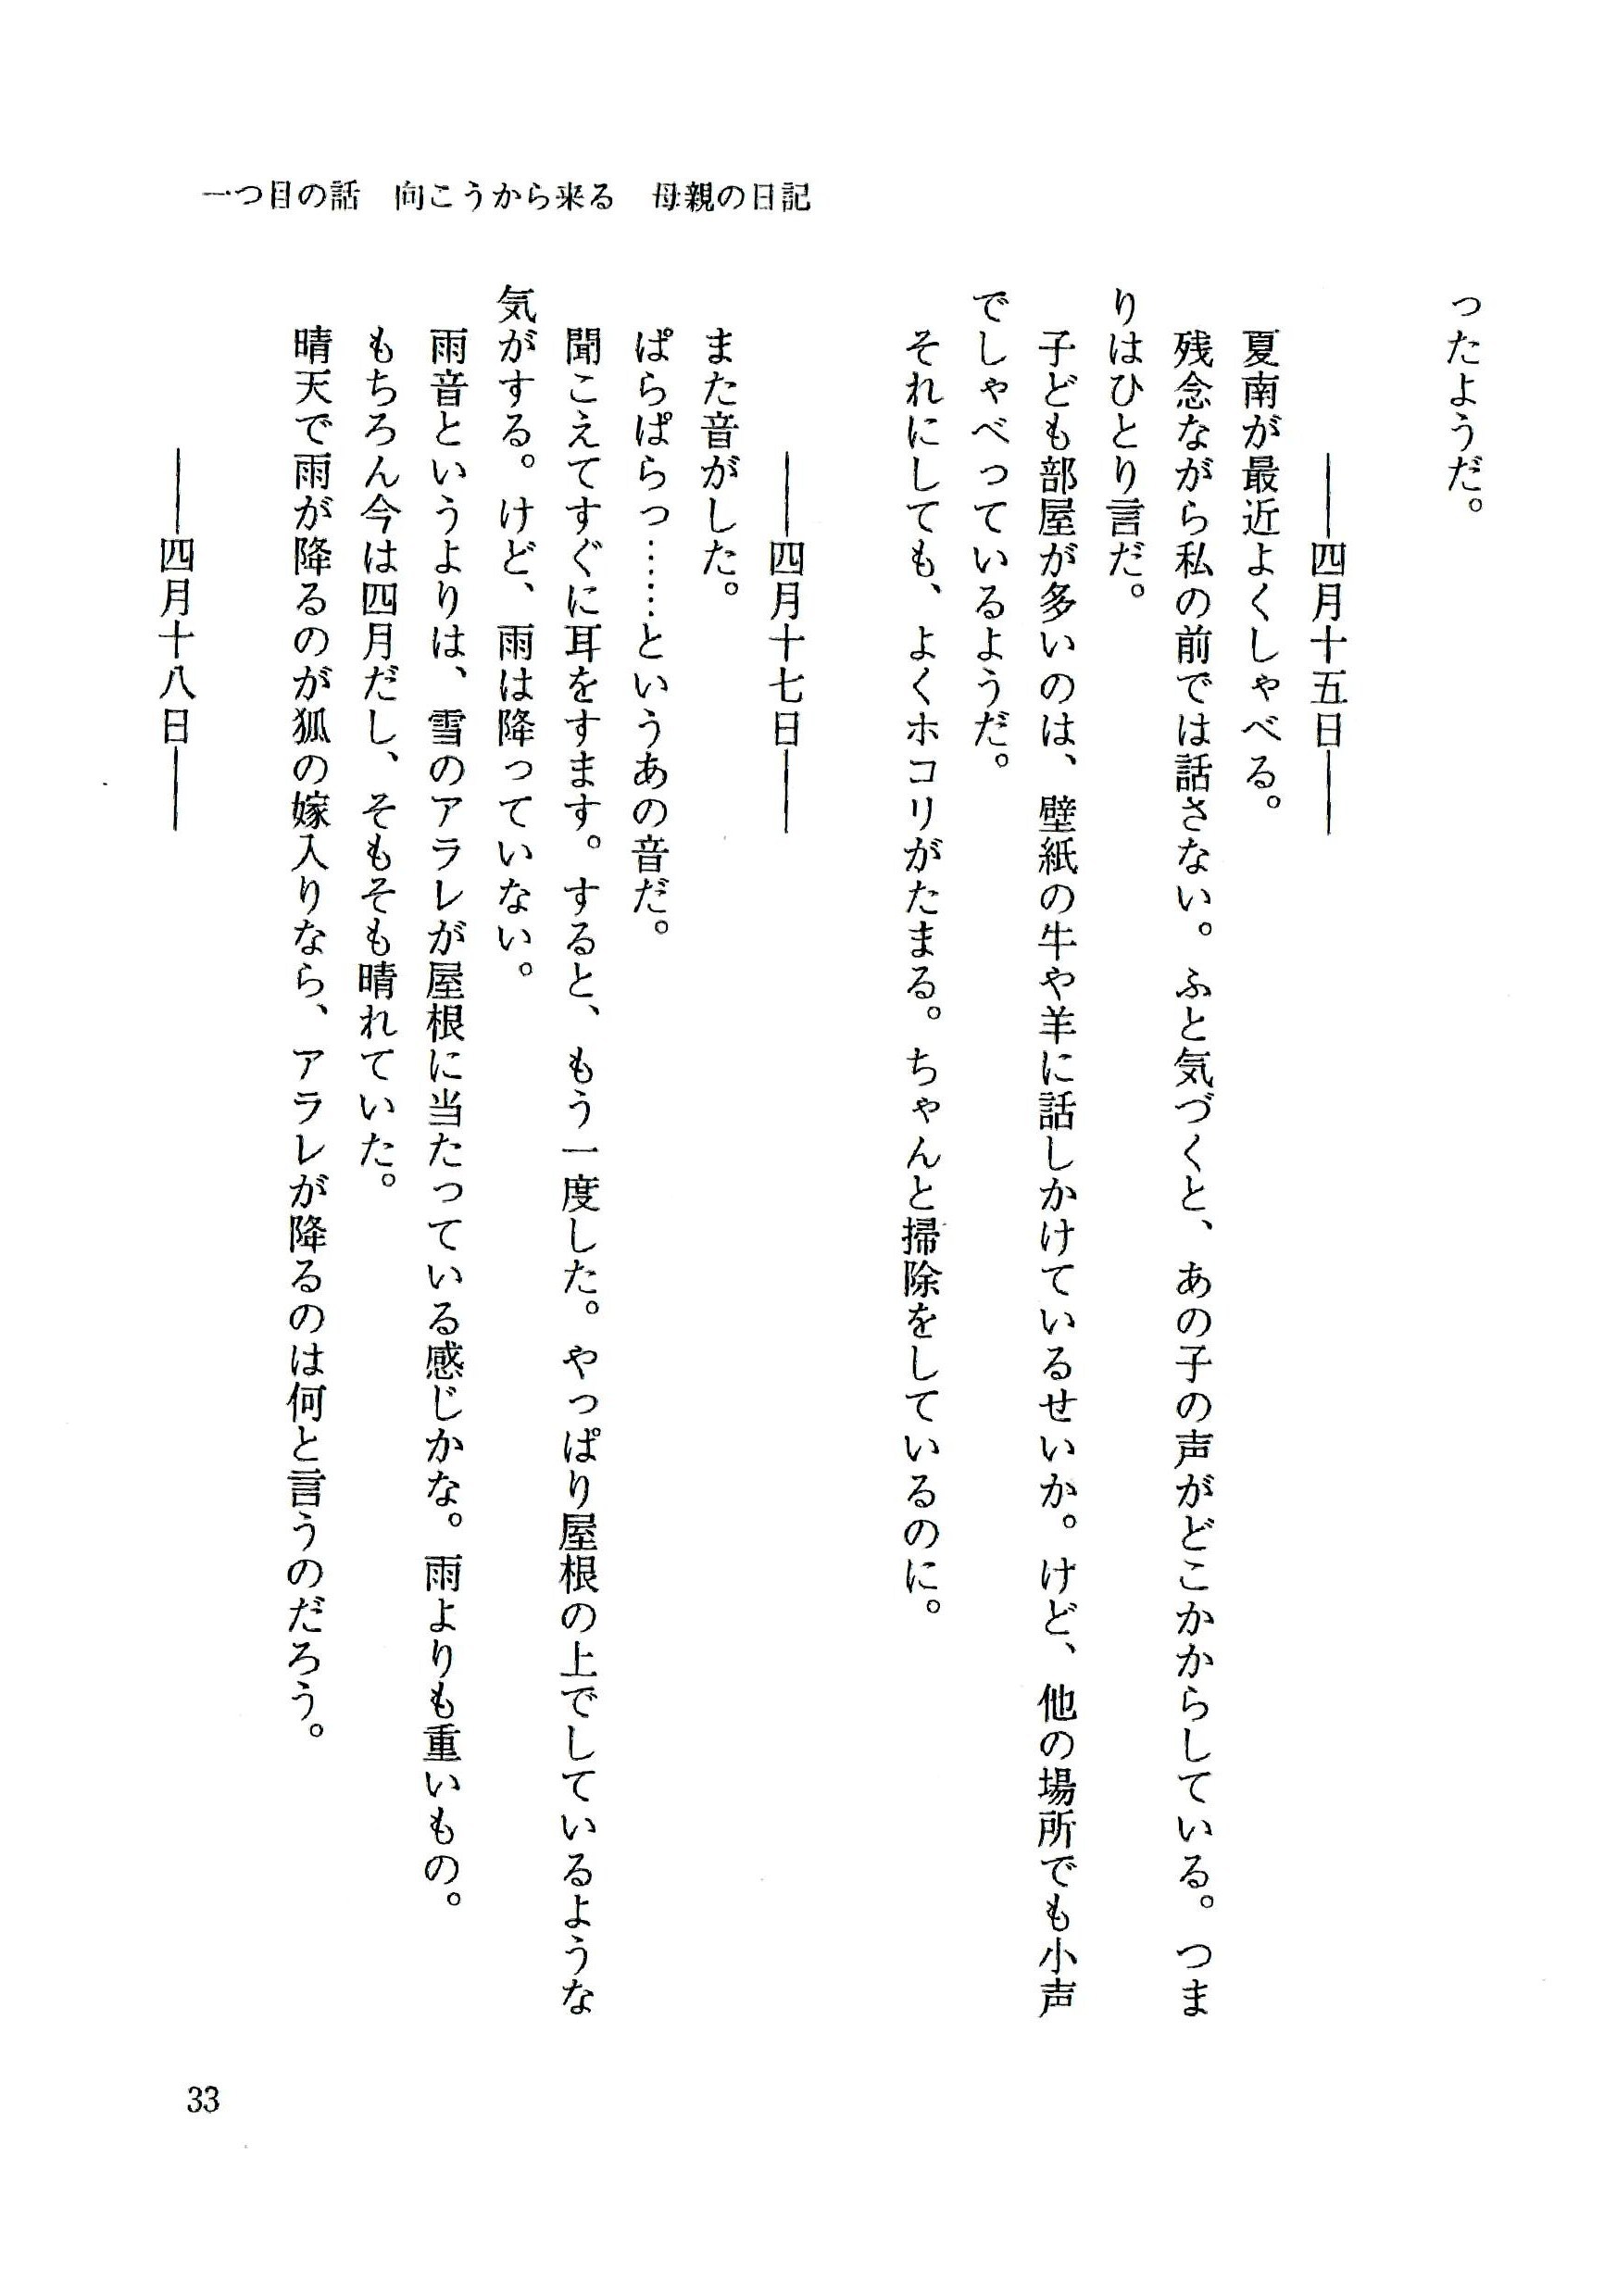 一つ目の話　向こうから来る　母親の日記
ったようだ。
――四月十五日――
夏南が最近よくしゃべる。
残念ながら私の前では話さない。ふと気づくと、あの子の声がどこかからしている。つま
りはひとり言だ。
子ども部屋が多いのは、壁紙の牛や羊に話しかけているせいか。けど、他の場所でも小声
でしゃべっているようだ。
それにしても、よくホコリがたまる。ちゃんと掃除をしているのに。
――四月十七日――
また音がした。
ぱらぱらっ……というあの音だ。
聞こえてすぐに耳をすます。すると、もう一度した。やっぱり屋根の上でしているような
気がする。けど、雨は降っていない。
雨音というよりは、雪のアラレが屋根に当たっている感じかな。雨よりも重いもの。
もちろん今は四月だし、そもそも晴れていた。
晴天で雨が降るのが狐の嫁入りなら、アラレが降るのは何と言うのだろう。
――四月十八日――
33